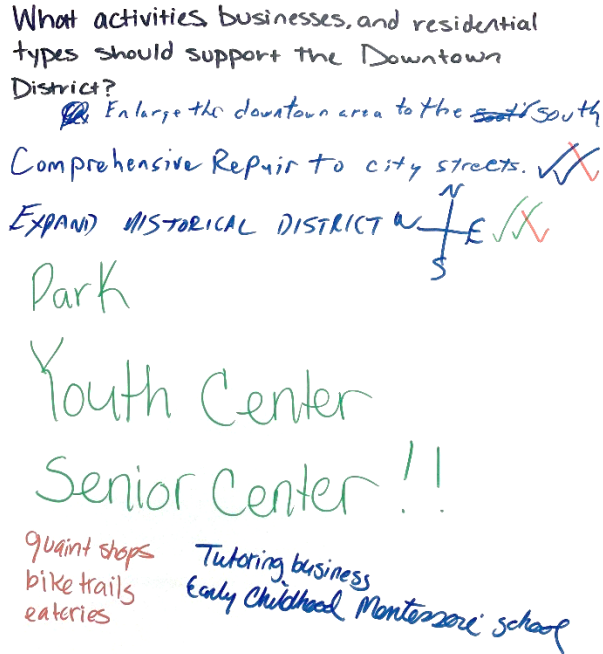 What activities, businesses, and residential
types should support the Downtown
District?
Enlarge the downtown area to the south
Comprehensive Repair to city streets.
EXPAND HISTORICAL DISTRICT N W E S
Park
Youth Center
Senior Center !!
quaint shops
bike trails
eateries
Tutoring business
Early Childhood Montessori school